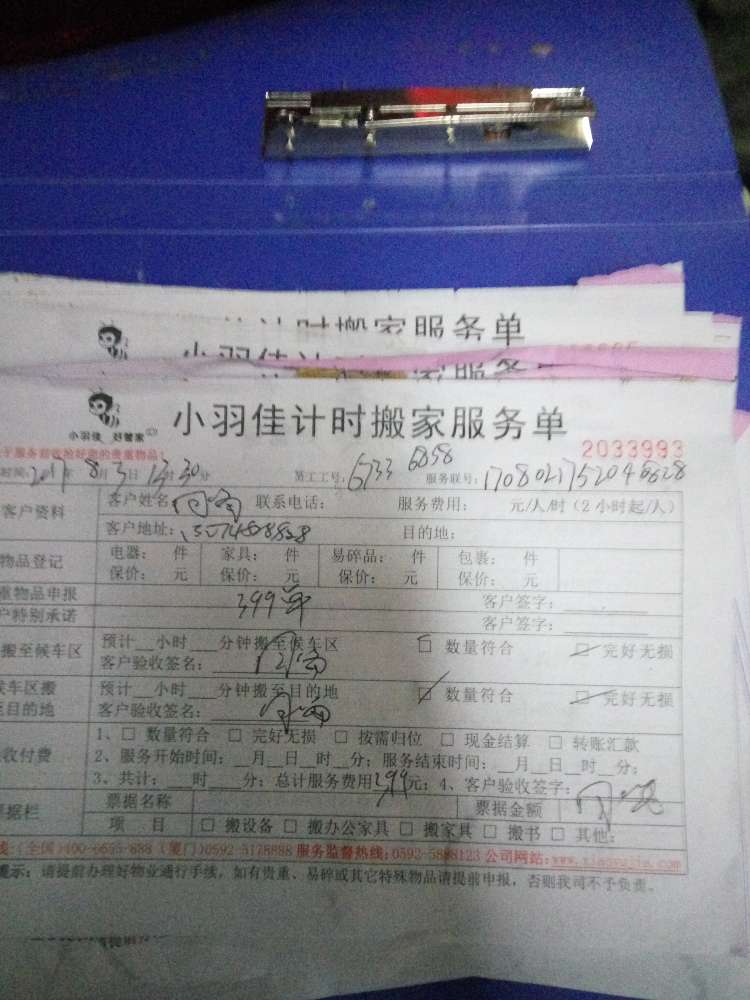 时搬家服务单
小羽佳计时搬家服务单
小羽佳 好管家
2033993
于服务前收验好您的贵重物品!
时间: 2017年 8月 3日 13时30分 员工工号: 6733 6858 服务联号: 1708021752046628
客户资料
客户姓名 联系电话: 服务费用: 元/人/时(2小时起/人)
客户地址: 目的地:
物品登记
电器: 件 家具: 件 易碎品: 件 包裹: 件
保价: 元 保价: 元 保价: 元 保价: 元
重物品申报 399单 客户签字:
户特别承诺 客户签字:
搬至候车区
预计__小时__分钟搬至候车区 □ 数量符合 □ 完好无损
客户验收签名:
候车区搬
至目的地
预计__小时__分钟搬至目的地 □ 数量符合 □ 完好无损
客户验收签名:
收付费
1、□ 数量符合 □ 完好无损 □ 按需归位 □ 现金结算 □ 转账汇款
2、服务开始时间:__月__日__时__分; 服务结束时间:__月__日__时__分;
3、共计:__时__分; 总计服务费用399元; 4、客户验收签字:
票据栏
票据名称 票据金额
项 目 □ 搬设备 □ 搬办公家具 □ 搬家具 □ 搬书 □ 其他:
线:(全国)400-6655-888 (厦门)0592-5178888 服务监督热线:0592-5888123 公司网站:
提示: 请提前办理好物业通行手续, 如有贵重、易碎或其它特殊物品请提前申报, 否则我司不予负责。